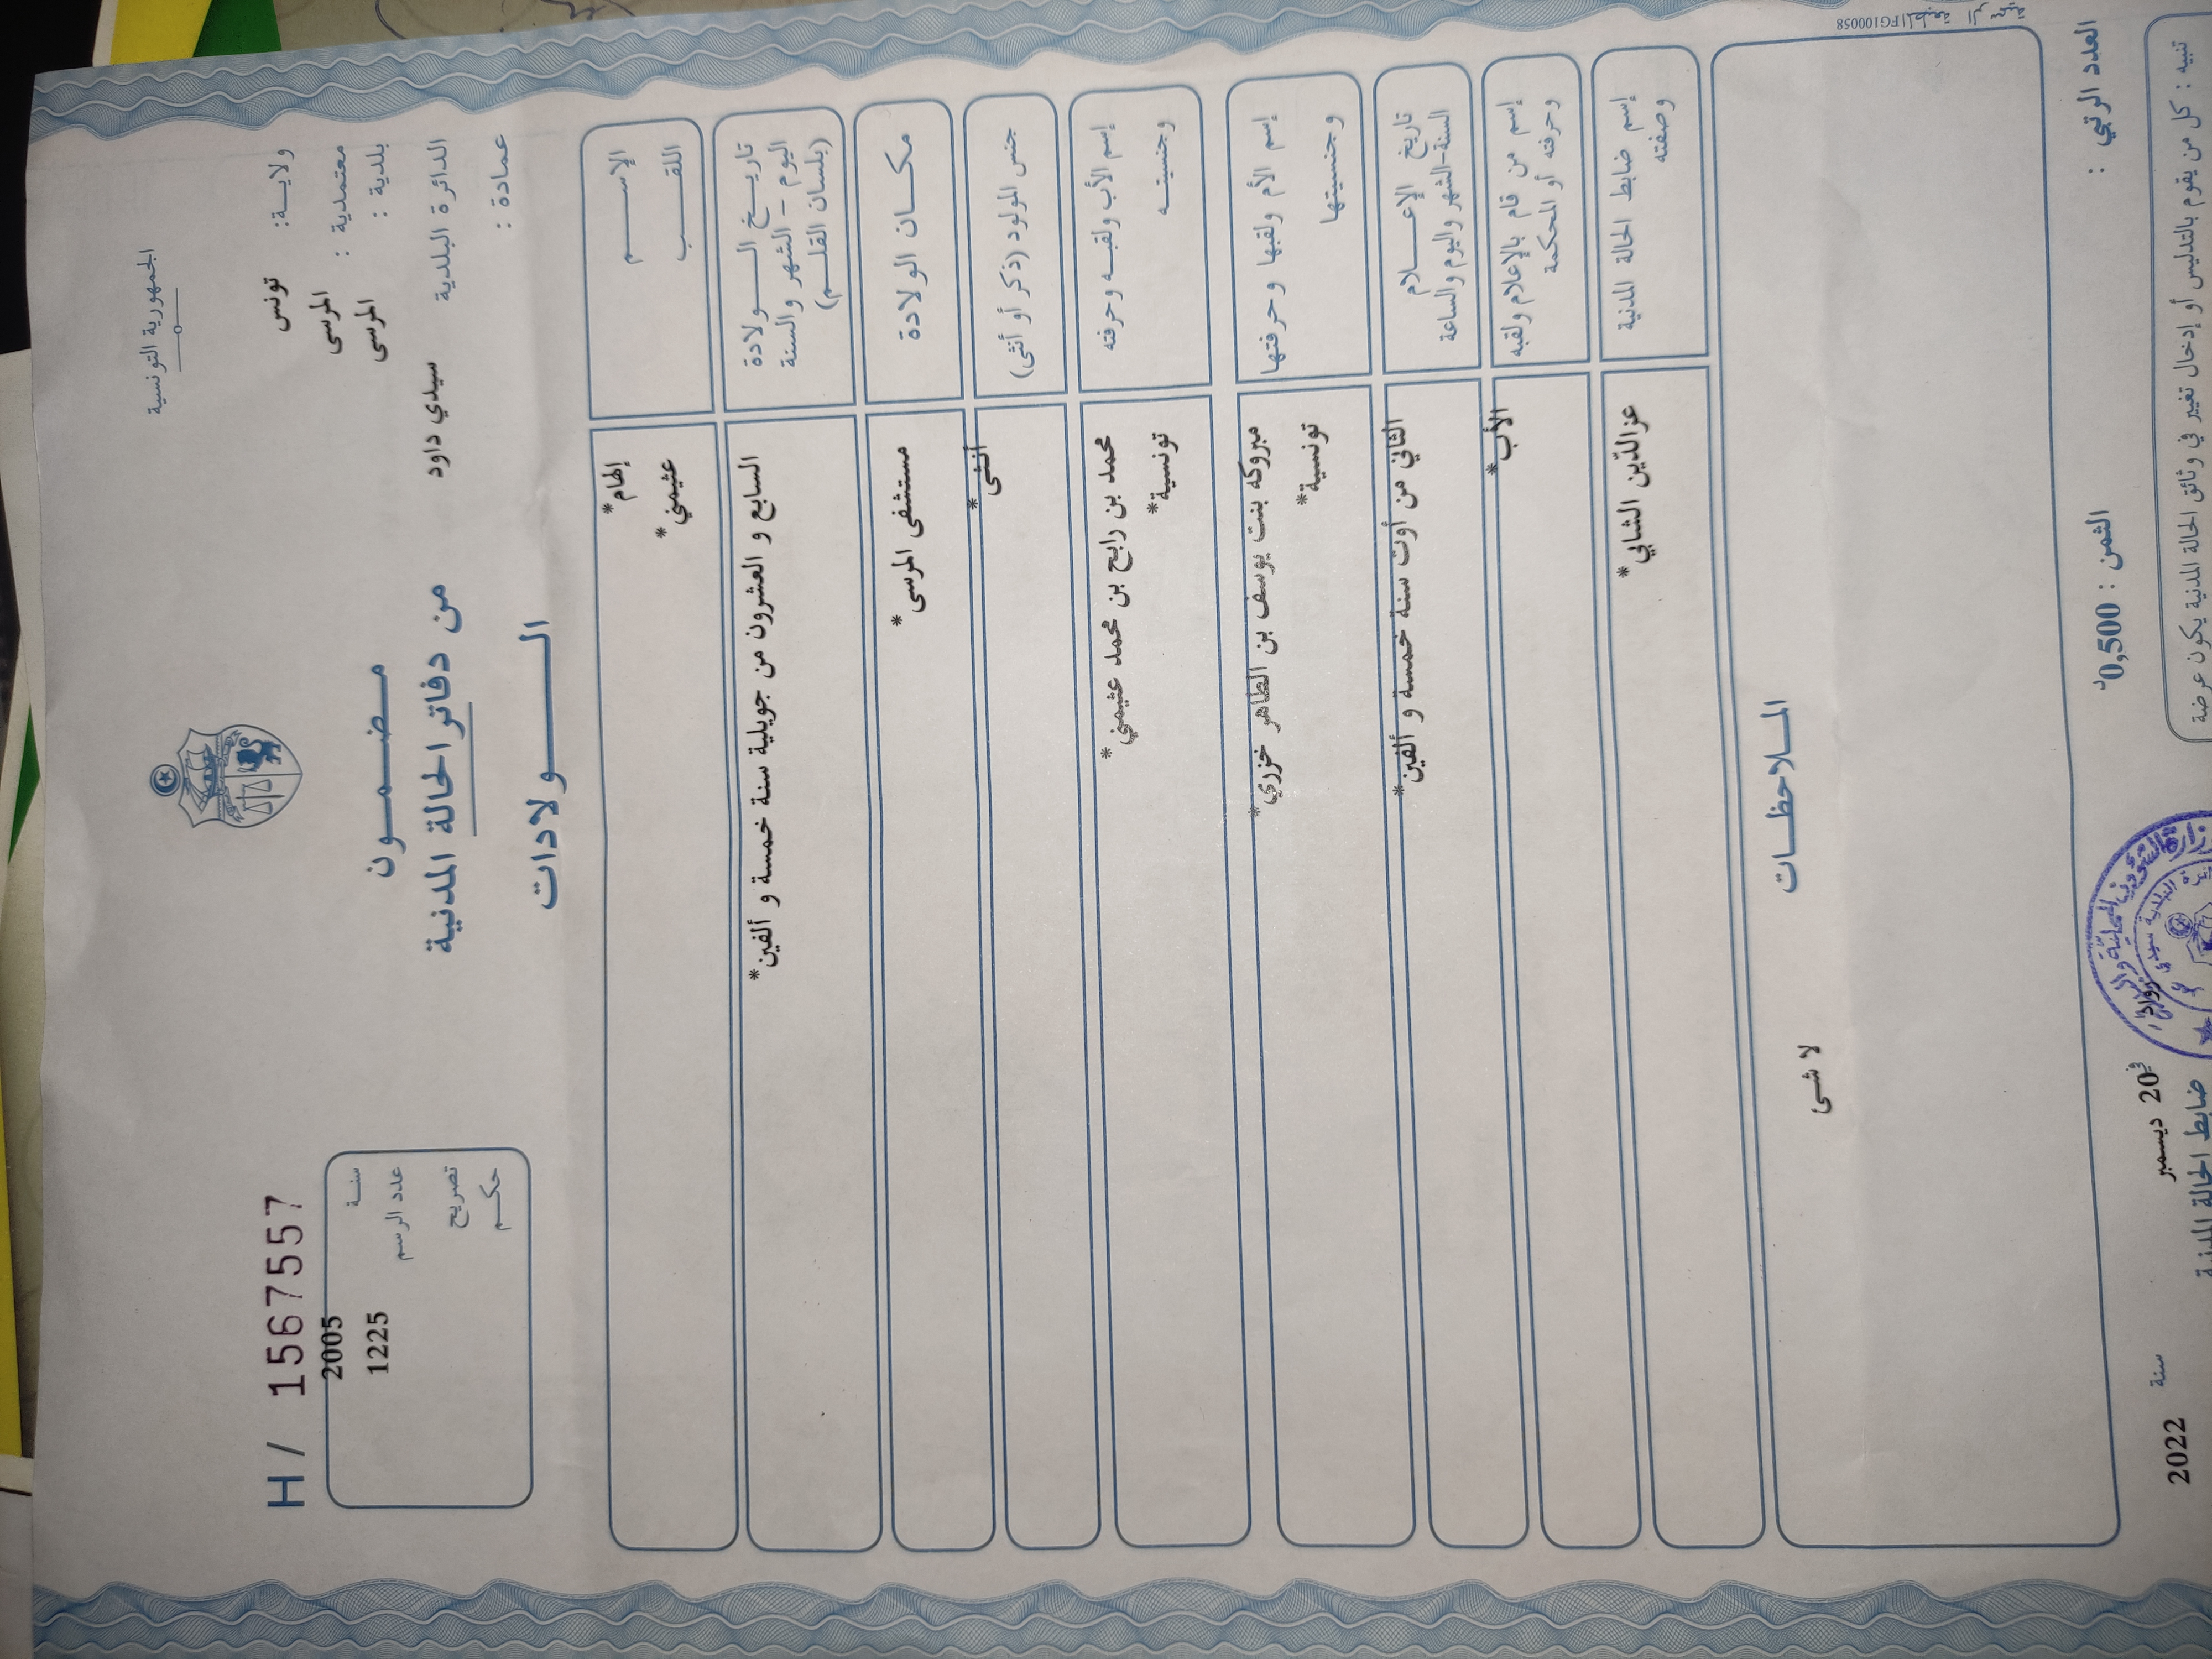 الجمهورية التونسية
ولايـــة: تونس
معتمدية : المرسى
بلدية : المرسى
الدائرة البلدية سيدي داود
عمادة :
H/ 1567557
سنــة 2005
عدد الرسم 1225
تصريح
حكــم
مـــضـــمـــون
من دفاتر الحالة المدنية
الـــــولادات
الإســـــم إلهام*
اللقـــب عثيمني*
تاريـــخ الـــــولادة
اليوم - الشهر والسنة
(بلسان القلـــم)
السابع و العشرون من جويلية سنة خمسة و ألفين*
مكـــان الولادة مستشفى المرسى*
جنس المولود (ذكر أو أنثى) أنثى*
إسم الأب ولقبـــه وحرفته محمد بن رابح بن محمد عثيمني*
وجنسيتـــه تونسية*
إسم الأم ولقبها وحرفتها مبروكه بنت يوسف بن الطاهر خزري*
وجنسيتها تونسية*
تاريخ الإعـــــلام
السنة-الشهر واليوم والساعة
الثاني من أوت سنة خمسة و ألفين*
إسم من قام بالإعلام ولقبه
وحرفته أو المحكمة
الأب*
إسم ضابط الحالة المدنية
وصفته
عزالدّين الشابي*
المـــلاحظـــات
لا شىء
FG100058
العدد الرتبي :
الثمن : 0,500د
في 20 ديسمبر سنة 2022
ضابط الحالة المدنية
تنبيه : كل من يقوم بالتدليس أو إدخال تغيير في وثائق الحالة المدنية يكون عرضة